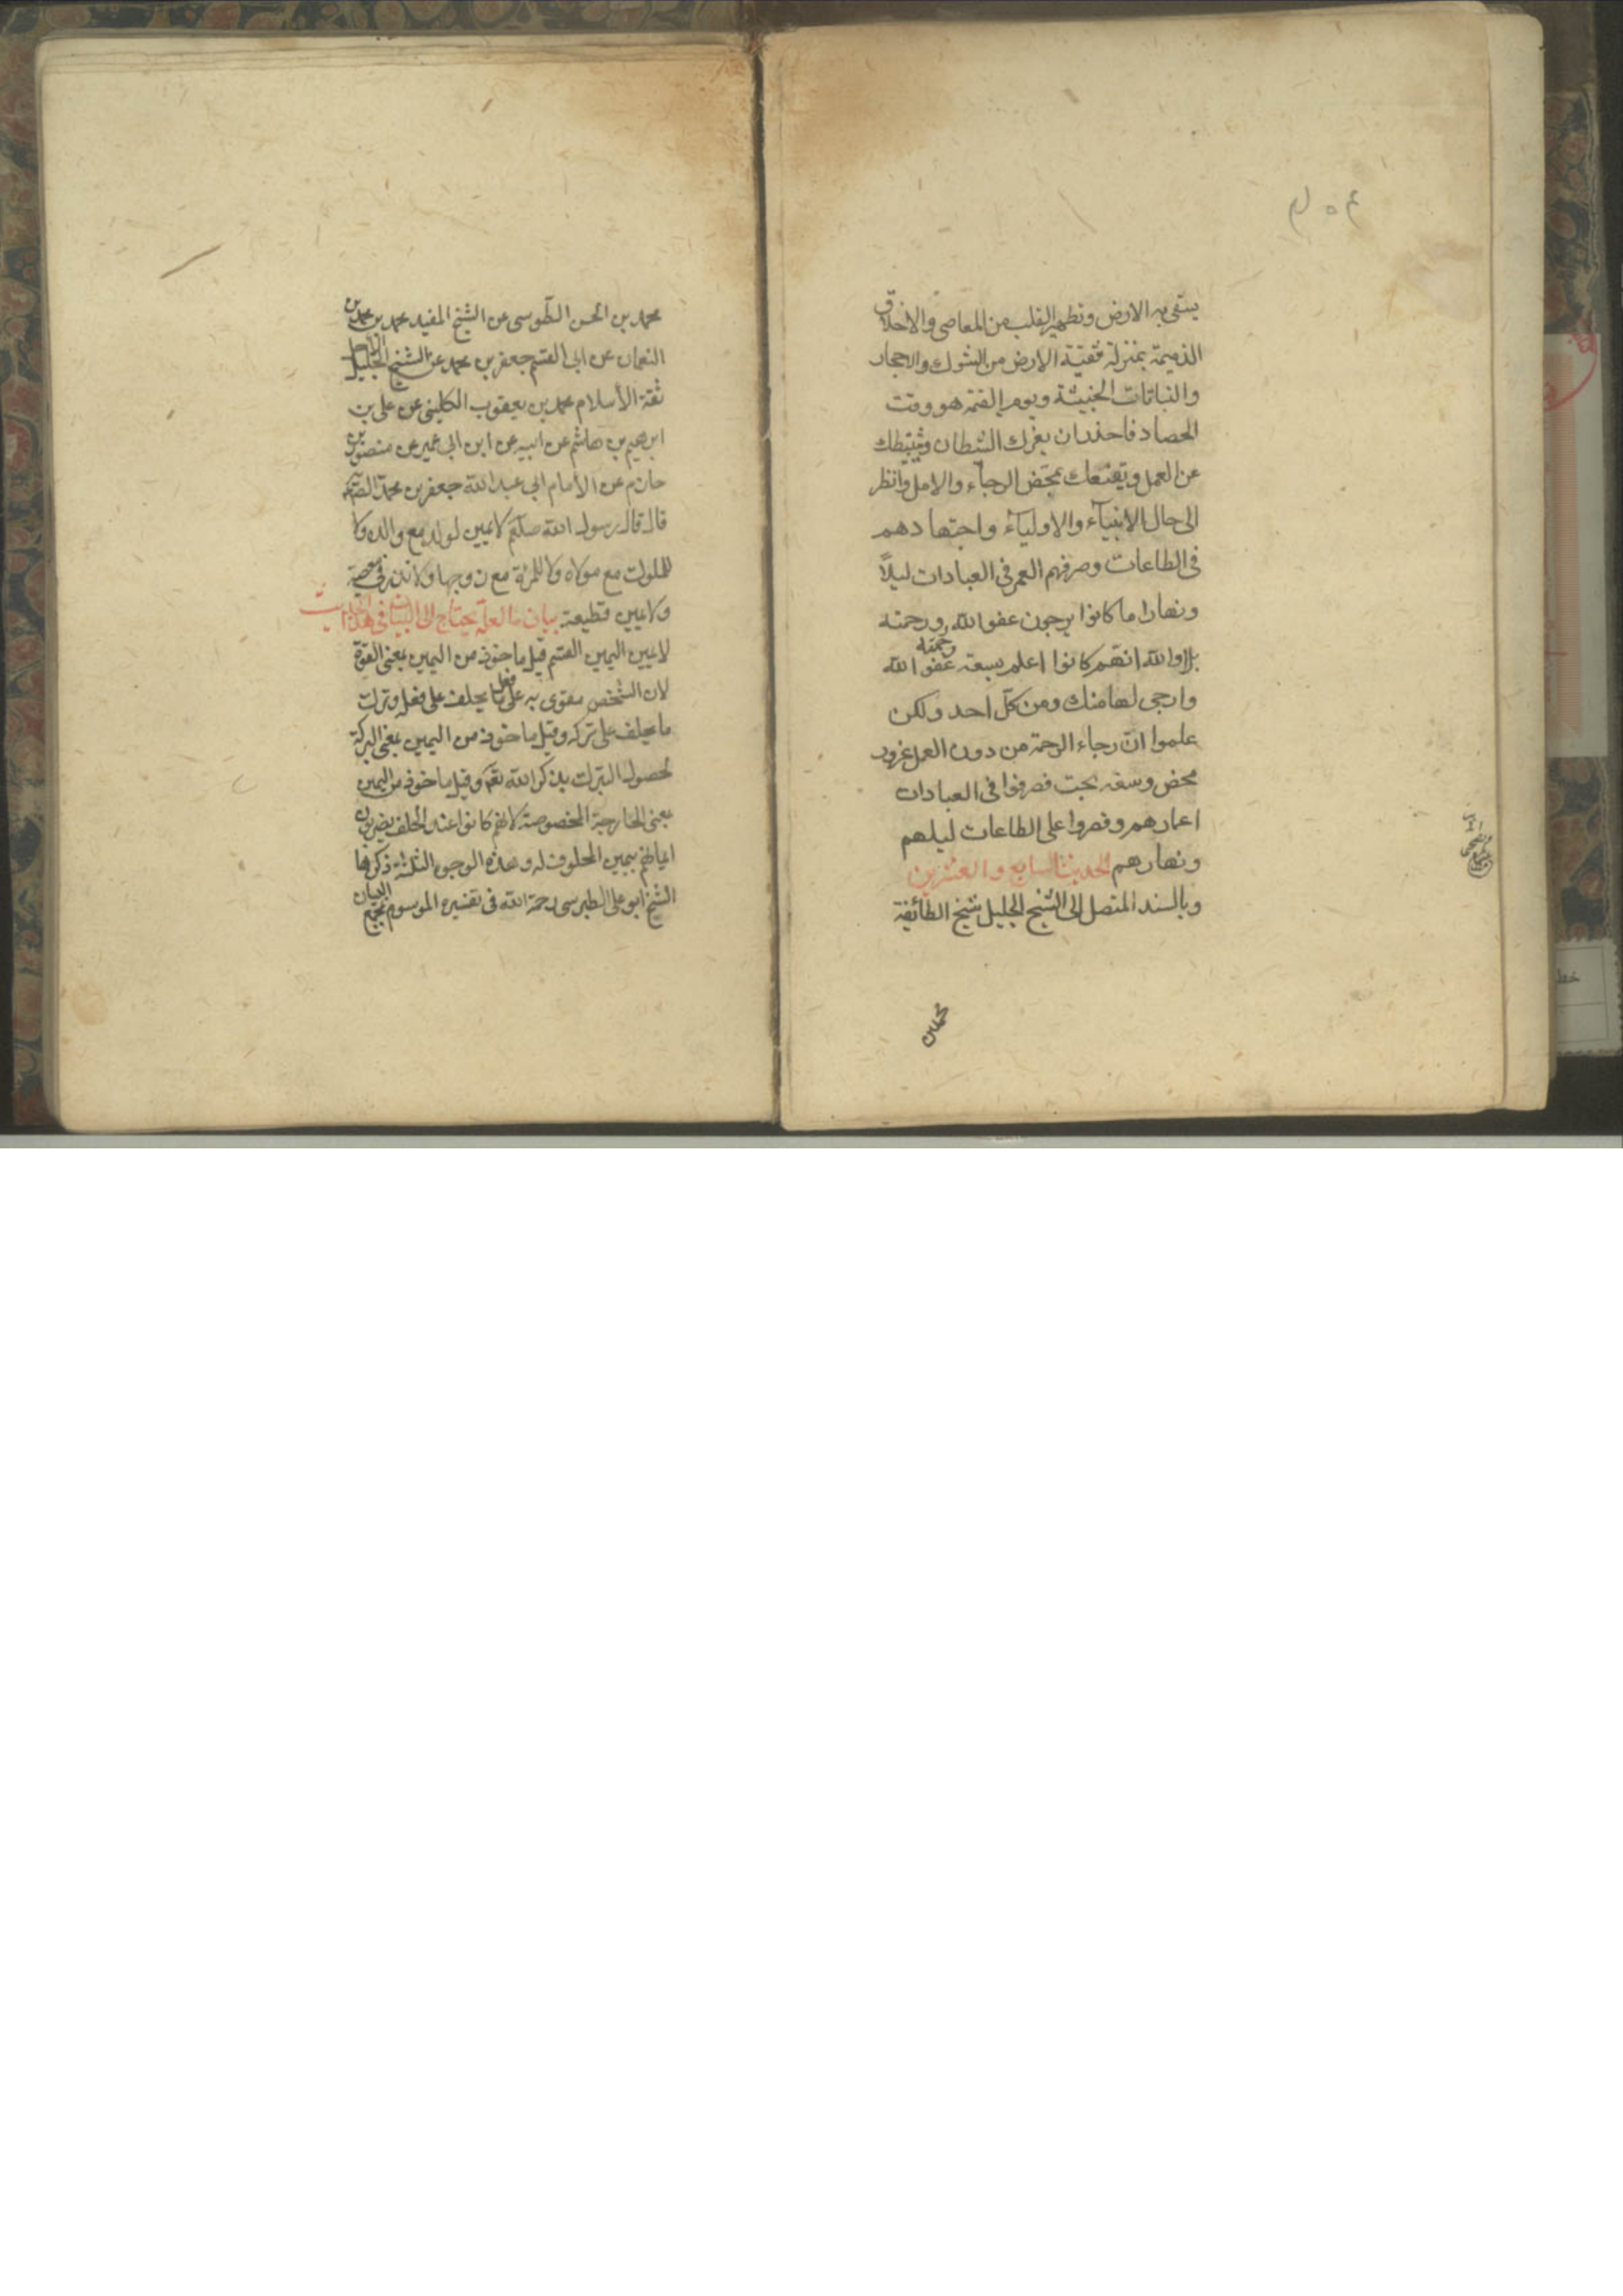 يستقى به الارض وتطهير القلب من المعاصى والاخلاق
الذميمة بمنزلة تنقية الارض من الشوك والاحجار
والنباتات الخبيثة ويوم القيمة هو وقت
الحصاد فاحذر ان يغرك الشيطان ويثبطك
عن العمل ويقنعك بمحض الرجاء والامل وانظر
الى حال الانبيآء والاوليآء واجتهادهم
فى الطاعات وصرفهم العمر فى العبادات ليلاً
ونهارا اما كانوا يرجون عفو الله ورحمته
بلا والله انهم كانوا اعلم بسعة عفو الله ورحمته
وارجى لها منك ومن كلّ احد ولكن
علموا انّ رجاء الرحمة من دون العمل غرور
محض وسفه بحت فصرفوا فى العبادات
اعمارهم وقصروا على الطاعات ليلهم
ونهارهم الحديث السابع والعشرين
وبالسند المتصل الى الشيخ الجليل شيخ الطائفة
محمد بن
محمد بن الحسن الطّوسى عن الشيخ المفيد محمد بن محمد بن
النعمان عن ابى القسم جعفر بن محمد عن الشيخ الجليل
ثقة الأسلام محمد بن يعقوب الكلينى عن على بن
ابرهيم بن هاشم عن ابيه عن ابن ابى عمير عن منصور بن
حازم عن الامام ابى عبد الله جعفر بن محمد الصادق
قال قال رسول الله صلعم لا يمين لولد مع والده ولا
للملوك مع مولاه ولا للمرئة مع زوجها ولا نذر فى معصية
ولا يمين قطيعة بيان ما لعلّه يحتاج الى البيان فى هذا الحديث
لا يمين اليمين القسم قيل ماخوذ من اليمين بمعنى القوّة
لان الشخص يتقوى به على فعل ما يحلف على فعله وترك
ما يحلف على تركه وقيل ماخوذ من اليمين بمعنى البركة
لحصول التبرك بذكر الله تعم وقيل ماخوذ من اليمين
بمعنى الجارحة المخصوصة لانهم كانوا عند الحلف يضربون
ايمانهم بيمين المحلوف له وهذه الوجوه الثلثة ذكرها
الشيخ ابو على الطبرسى رحمة الله فى تفسيره الموسوم بمجمع البيان